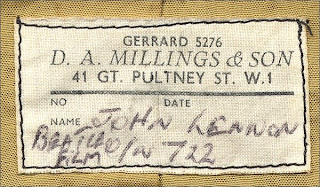 GERRARD 5276
D. A. MILLINGS & SON
41 GT. PULTNEY ST. W.1
NO DATE
NAME JOHN LENNON
BEATLE
FILM O/N 722